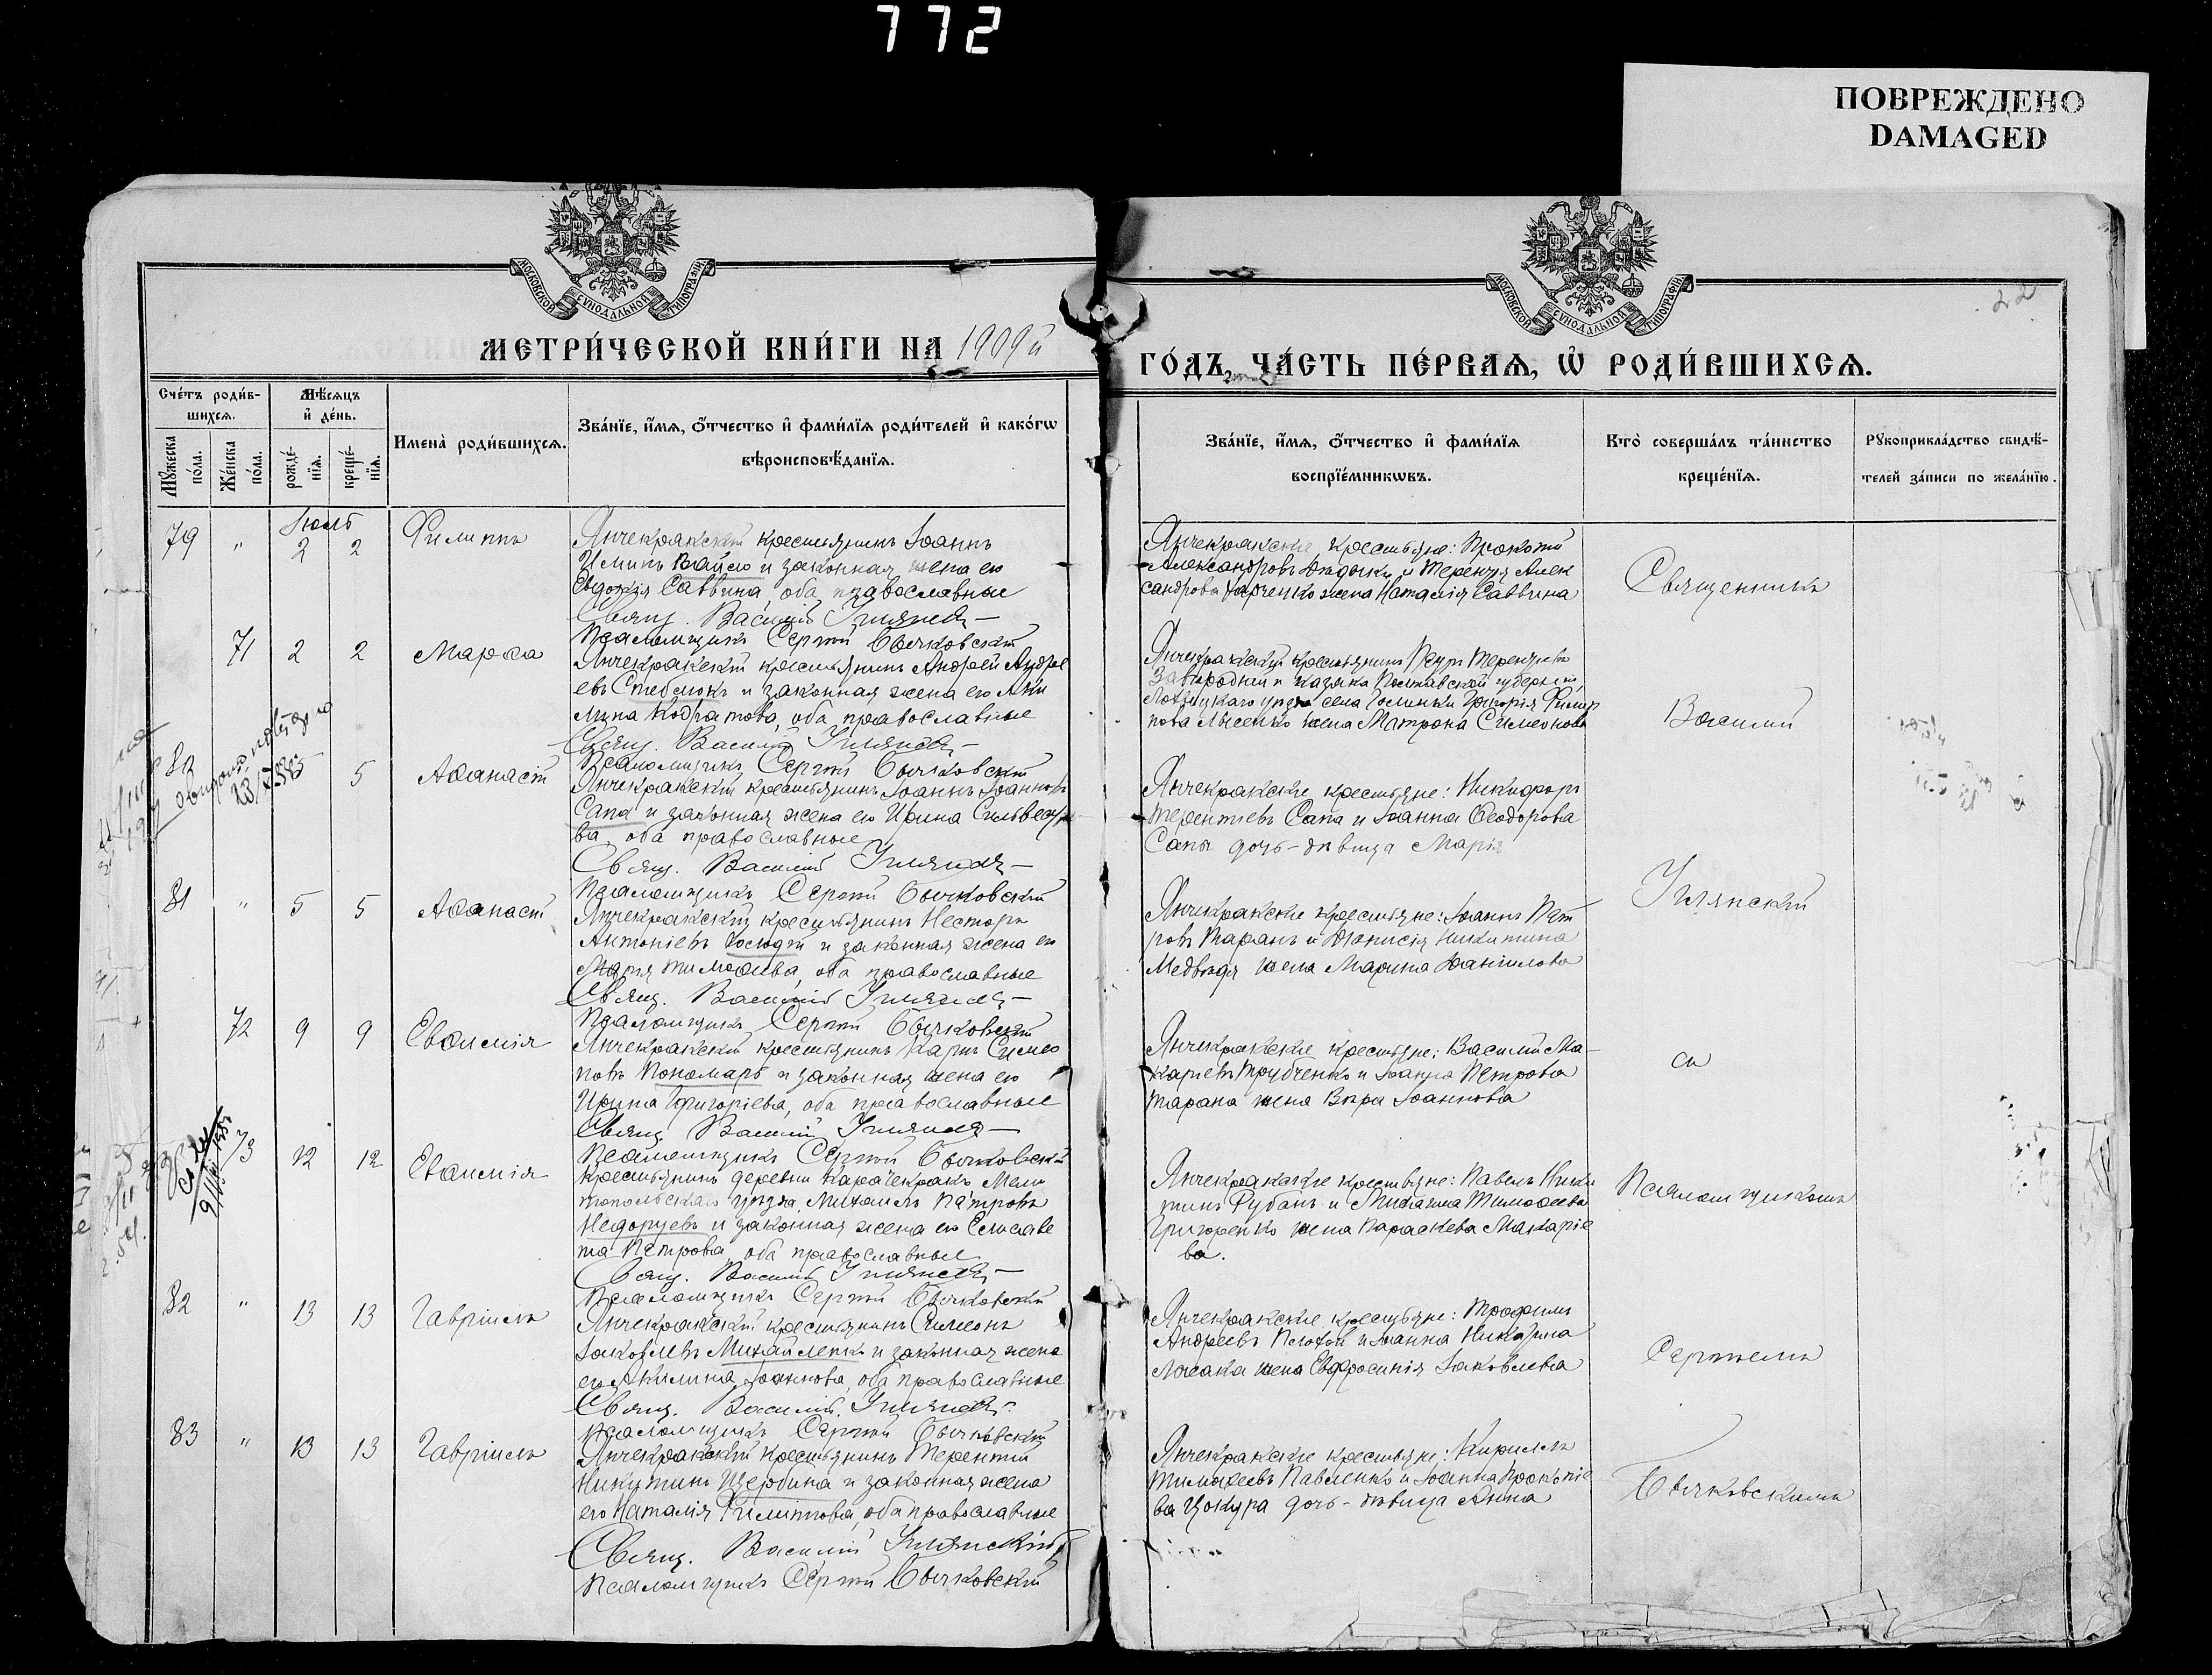 772
ПОВРЕЖДЕНО
DAMAGED
МОСКОВСКОЙ СУНОДАЛЬНОЙ ТИПОГРАФІИ
МОСКОВСКОЙ СУНОДАЛЬНОЙ ТИПОГРАФІИ
22
МЕТРИ́ЧЕСКОЙ КНИ́ГИ НА 1909й
ГО́ДЪ, ЧА́СТЬ ПЕ́РВАѦ, Ѡ҆ РОДИ́ВШИХСѦ.
Сче́тъ роди́в-
шихсѧ.
Мꙋ́жеска по́ла.
Же́нска по́ла.
Мѣ́сѧцъ
и҆ де́нь.
рожде́-
нїѧ.
креще́-
нїѧ.
Имена̀ роди́вшихсѧ.
Зва́нїе, и҆́мѧ, ѻ҆́тчество и҆ фами́лїѧ роди́телей и҆ како́гѡ
вѣроисповѣ́данїѧ.
Зва́нїе, и҆́мѧ, ѻ҆́тчество и҆ фами́лїѧ
воспрїе́мникѡвъ.
Кто̀ соверша́лъ та́инство
креще́нїѧ.
Рꙋкоприкла́дство свидѣ́-
телей за́писи по жела́нїю.
Іюль
79 " 2 2 Филиппъ
Янчекракскій крестьянинъ Іоаннъ
и законная жена его
Евдокія Саввина, оба православные
Свящ. Василій
Псаломщикъ Сергій Бычковскій
Янчекракскіе крестьяне: Прокопій
Александровъ Дядыкъ и Терентія Алек
сандрова Харченко жена Наталія Саввина
71 2 2 Марѳа
Янчекракскій крестьянинъ Андрей Андре
евъ Стеблюкъ и законная жена его Аки
лина Кодратова, оба православные
Свящ. Василій
Псаломщикъ Сергій Бычковскій
Янчекракскій крестьянинъ Петръ Терентьевъ
Завгородній и казака Полтавской губерніи,
Лохвицкаго уѣзда села Григорія Филип
пова Лысенко жена Матрона Симеонова
80 5 5 Аѳанасій
Янчекракскій крестьянинъ Іоаннъ Іоанновъ
Сапа и законная жена его Ирина Сильвестро
ва, оба православные
Свящ. Василій
Псаломщикъ Сергій Бычковскій
Янчекракскіе крестьяне: Никифоръ
Терентіевъ Сапа и Іоанна Ѳеодорова
Сапы дочь-дѣвица Марія
81 " 5 5 Аѳанасій
Янчекракскій крестьянинъ Несторъ
Антоніевъ и законная жена его
Марія Тимоѳеева, оба православные
Свящ. Василій
Псаломщикъ Сергій Бычковскій
Янчекракскіе крестьяне: Іоаннъ Пет
ровъ Таранъ и Діонисія Никитина
Медвѣдя жена Марина Даніилова
72 9 9 Евѳимія
Янчекракскій крестьянинъ Карпъ Симео
новъ Пономарь и законная жена его
Ирина Григоріева, оба православные
Свящ. Василій
Псаломщикъ Сергій Бычковскій
Янчекракскіе крестьяне: Василій Ма-
каріевъ Трубченко и Іоанна Петрова
Тарана жена Вѣра Іоаннова
73 12 12 Евѳимія
Крестьянинъ деревни Карачекракъ Мели
топольскаго уѣзда Михаилъ Петровъ
Недоруевъ и законная жена его Елисаве
та Петрова, оба православные
Свящ. Василій
Псаломщикъ Сергій Бычковскій
Янчекракскіе крестьяне: Павелъ Ники
тинъ Рубанъ и Михаила Тимоѳеева
Григоренко жена Параскева Макаріе
ва.
82 " 13 13 Гавріилъ
Янчекракскій крестьянинъ Симеонъ
Іаковлевъ Михайленко и законная жена
его Акилина Іоаннова, оба православные
Свящ. Василій
Псаломщикъ Сергій Бычковскій
Янчекракскіе крестьяне: Трофимъ
Андреевъ Плохой и Іоанна Никитина
жена Евфросинія Іаковлева
83 " 13 13 Гавріилъ
Янчекракскій крестьянинъ Терентій
Никитинъ Щербина и законная жена
его Наталія Филиппова, оба православные
Свящ. Василій
Псаломщикъ Сергій Бычковскій
Янчекракскіе крестьяне: Кириллъ
Тимоѳеевъ Павленко и Іоанна Прокопіе
ва Цокура дочь-дѣвица Анна
Священникъ
Василій
съ
Псаломщикомъ
Сергіемъ
Бычковскимъ